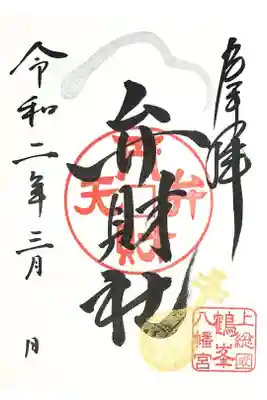 奉拝
弁財社
令和二年三月　日
上総國
鶴峯
八幡宮